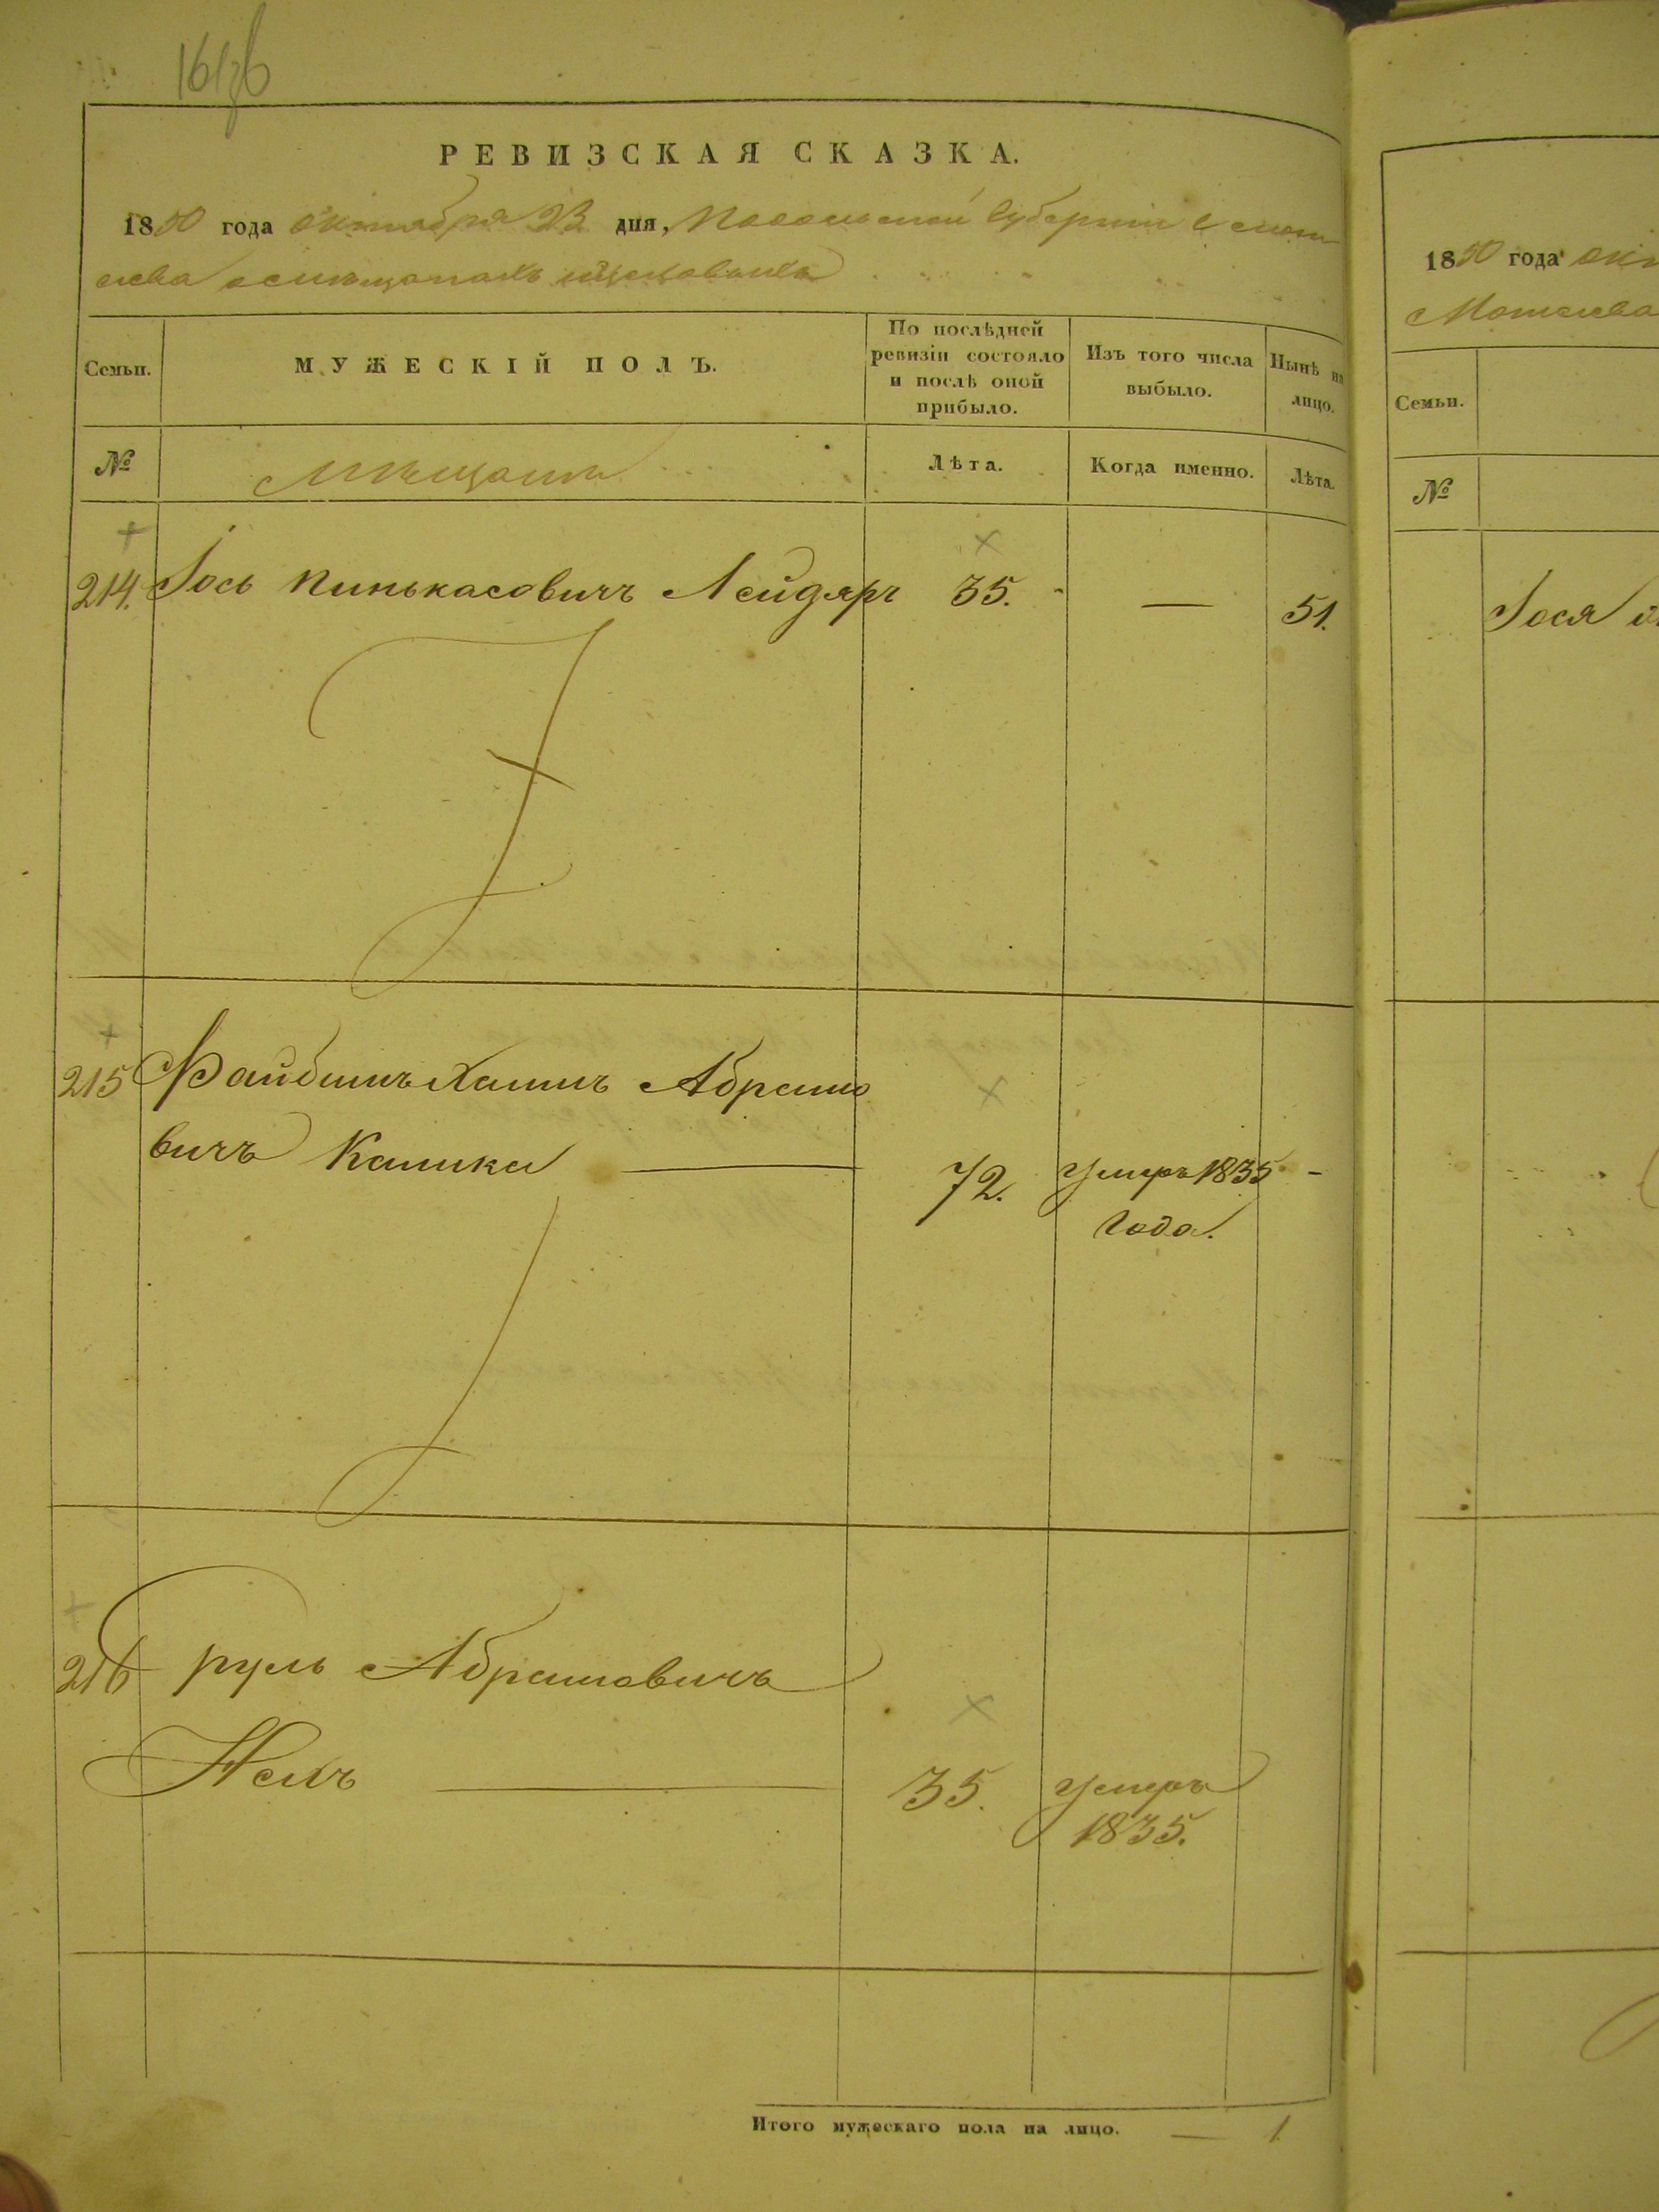 РЕВИЗСКАЯ СКАЗКА.
1850 года октября 23 дня, Подольской Губернии
о мещанахъ
Семьи.
МУЖЕСКІЙ ПОЛЪ.
По послѣдней ревизіи состояло и послѣ оной прибыло.
Изъ того числа выбыло.
Нынѣ на лицо.
№
Мещане
Лѣта.
Когда именно.
Лѣта.
214. Іось Пинькасовичъ Лейдяръ 35. — 51.
215 Файбишъ Хаимъ Абрамо
вичъ 72. умеръ 1835
года.
216 Сруль Абрамовичъ
35. умеръ
1835.
Итого мужескаго пола на лицо. — 1
1850 года
Семьи.
№
Іося